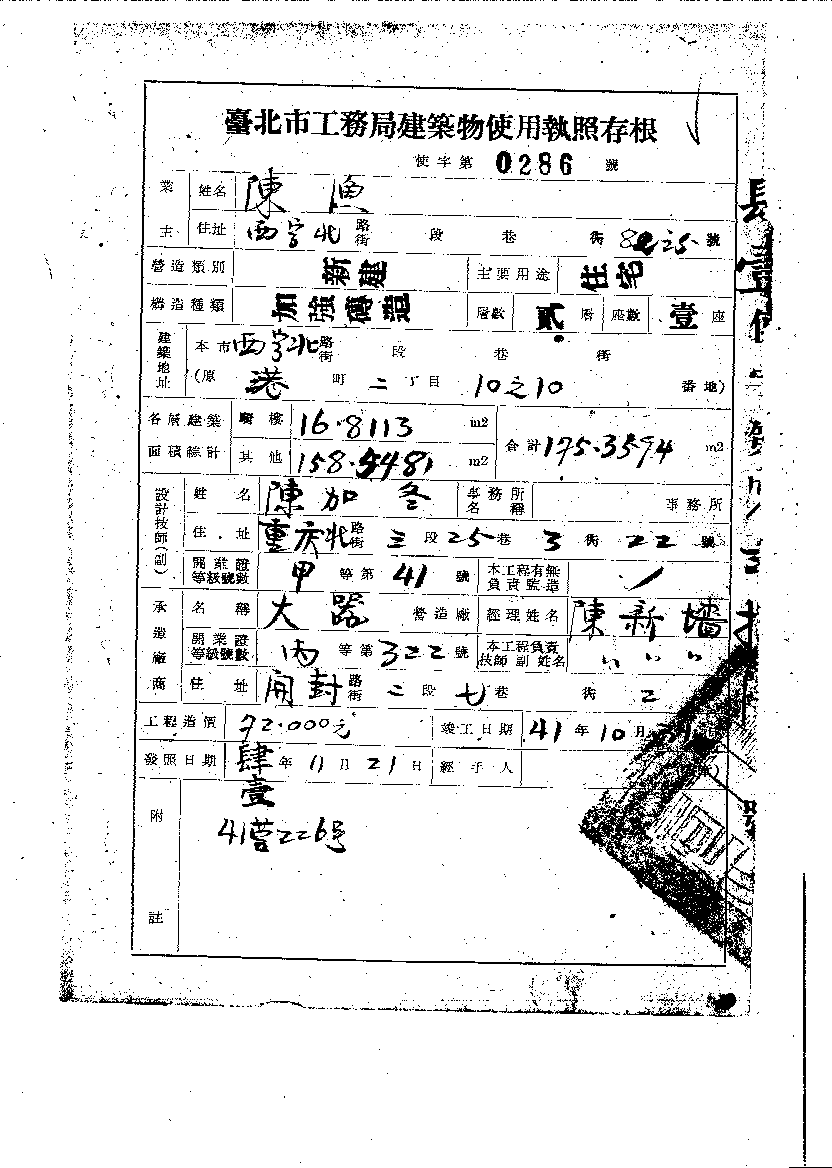 臺北市工務局建築物使用執照存根
使字第 0286 號
業主 姓名 陳 漁
住址 西寧北 路街 段 巷 衖 號
營造類別 新建 主要用途 住宅
構造種類 加強磚造 層數 貳 層 座數 壹 座
建築地址 本市 西寧北 路街 段 巷 衖
(原 港 町 二 丁目 10之10 番地)
各層建築面積綜計 騎樓 16.8113 m2 合計 175.3594 m2
其他 158.5481 m2
設計技師(副) 姓名 陳加冬 事務所名稱 事務所
住址 重庆北 路街 三 段 25 巷 3 衖 22 號
開業證等級號數 甲 等第 41 號 本工程有無負責監造
承造廠商 名稱 大器 營造廠 經理姓名 陳新墻
開業證等級號數 丙 等第 322 號 本工程負責技師副姓名 〃 〃 〃
住址 開封 路街 二 段 七 巷 衖 2
工程造價 72.000元 竣工日期 41 年 10 月
發照日期 肆壹 年 11 月 21 日 經手人
附註 41营226号